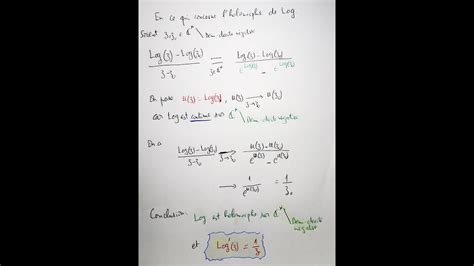 En ce qui concerne l'holomorphie de Log
Soient z, z₀ ∈ ℂ* \ Demi droite négative
Log(z) - Log(z₀) / z - z₀ = Log(z) - Log(z₀) / e^Log(z) - e^Log(z₀)
On pose u(z) = Log(z), u(z) → u(z₀) z→z₀
car Log est continue sur ℂ* \ Demi droite négative
On a Log(z) - Log(z₀) / z - z₀ = u(z) - u(z₀) / e^u(z) - e^u(z₀)
→ 1 / e^u(z₀) = 1 / z₀
Conclusion: Log est holomorphe sur ℂ* \ Demi-droite négative
et Log'(z) = 1/z